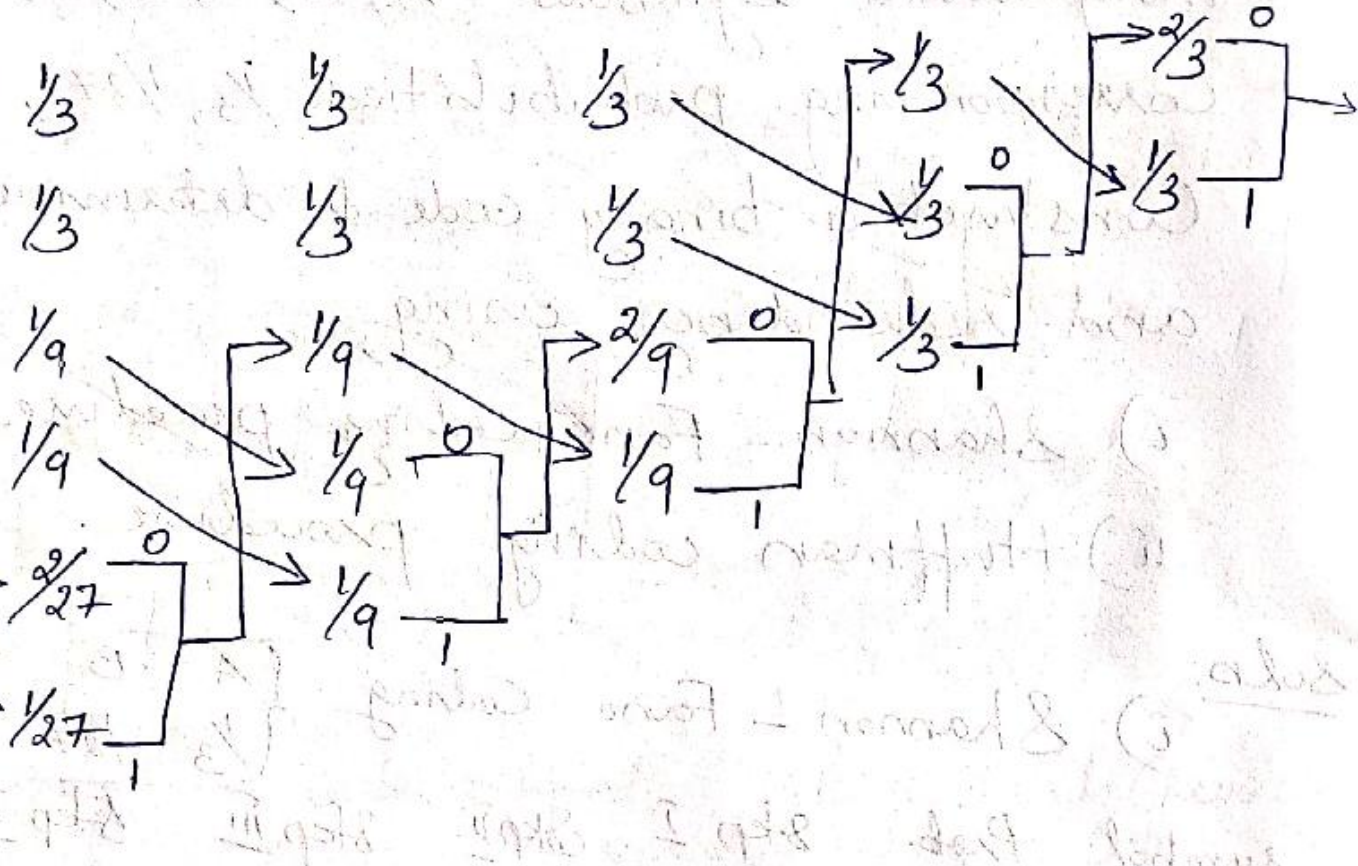 1/3 1/3 1/3 1/3 2/3 0
1/3 1/3 1/3 1/3 0 1/3 1
1/9 1/9 2/9 0 1/3 1
1/9 1/9 0 1/9 1
2/27 0 1/9 1
1/27 1